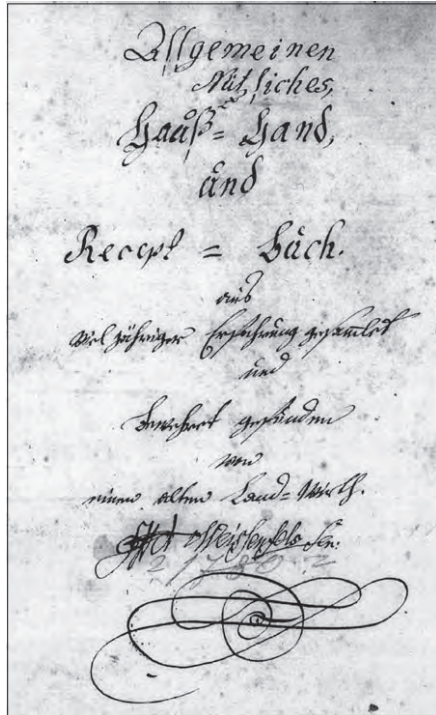 Allgemeinen
Nützliches,
Hauß = Hand,
und
Recept = Buch.
aus
viel jähriger Erfahrung gesammlet
und
bewehret gefunden
von
einen alten Land = Wirth.